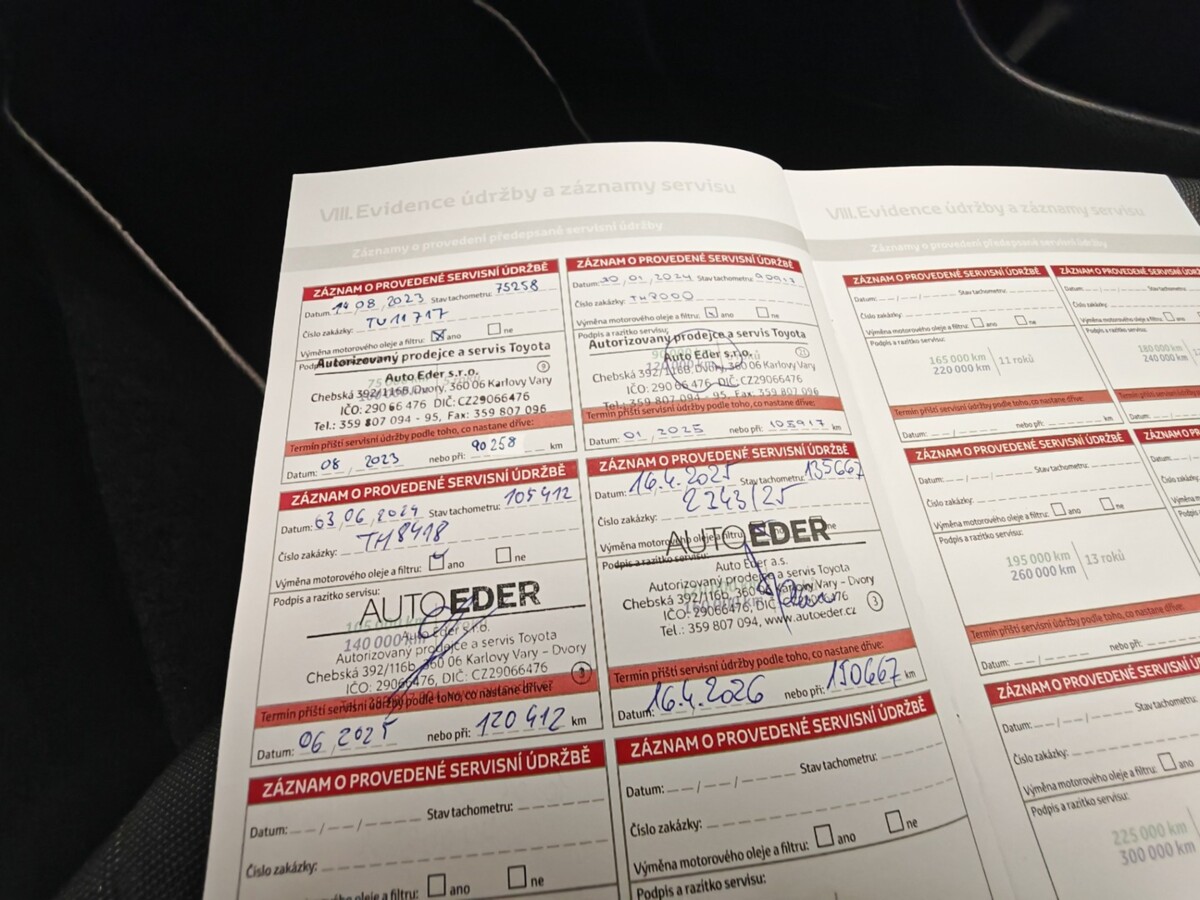 VIII. Evidence údržby a záznamy servisu
Záznamy o provedení předepsané servisní údržby
ZÁZNAM O PROVEDENÉ SERVISNÍ ÚDRŽBĚ
Datum: 14 08 2023 Stav tachometru: 75258
Číslo zakázky: TU11717
Výměna motorového oleje a filtru: ano ne
Autorizovaný prodejce a servis Toyota
Auto Eder s.r.o.
Chebská 392/116B, Dvory, 360 06 Karlovy Vary
IČO: 290 66 476 DIČ: CZ29066476
Tel.: 359 807 094 - 95, Fax: 359 807 096
Termín příští servisní údržby podle toho, co nastane dříve:
Datum: 08 2023 nebo při: 90258 km
ZÁZNAM O PROVEDENÉ SERVISNÍ ÚDRŽBĚ
Datum: 30 01 2024 Stav tachometru:
Číslo zakázky: TH2000
Výměna motorového oleje a filtru: ano ne
Podpis a razítko servisu:
Autorizovaný prodejce a servis Toyota
Auto Eder s.r.o.
Chebská 392/116B, Dvory, 360 06 Karlovy Vary
IČO: 290 66 476 DIČ: CZ29066476
Tel.: 359 807 094 - 95, Fax: 359 807 096
Termín příští servisní údržby podle toho, co nastane dříve:
Datum: 01 2025 nebo při: 105917 km
ZÁZNAM O PROVEDENÉ SERVISNÍ ÚDRŽBĚ
Datum: 03 06 2024 Stav tachometru: 105412
Číslo zakázky: TH8418
Výměna motorového oleje a filtru: ano ne
Podpis a razítko servisu:
AUTOEDER
140 000 km
Auto Eder s.r.o.
Autorizovaný prodejce a servis Toyota
Chebská 392/116b, 360 06 Karlovy Vary – Dvory
IČO: 29066476, DIČ: CZ29066476
3
Termín příští servisní údržby podle toho, co nastane dříve:
Datum: 06 2025 nebo při: 120412 km
ZÁZNAM O PROVEDENÉ SERVISNÍ ÚDRŽBĚ
Datum: 16.4.2025 Stav tachometru: 135667
Číslo zakázky: 2343/25
Výměna motorového oleje a filtru:
Podpis a razítko servisu:
AUTOEDER
Auto Eder a.s.
Autorizovaný prodejce a servis Toyota
Chebská 392/116b, 360 06 Karlovy Vary – Dvory
IČO: 29066476, DIČ: CZ29066476
Tel.: 359 807 094, www.autoeder.cz
3
Termín příští servisní údržby podle toho, co nastane dříve:
Datum: 16.4.2026 nebo při: 150667 km
ZÁZNAM O PROVEDENÉ SERVISNÍ ÚDRŽBĚ
Datum: Stav tachometru:
Číslo zakázky:
Výměna motorového oleje a filtru: ano ne
ZÁZNAM O PROVEDENÉ SERVISNÍ ÚDRŽBĚ
Datum: Stav tachometru:
Číslo zakázky:
Výměna motorového oleje a filtru: ano ne
Podpis a razítko servisu:
VIII. Evidence údržby a záznamy servisu
Záznamy o provedení předepsané servisní údržby
ZÁZNAM O PROVEDENÉ SERVISNÍ ÚDRŽBĚ
Datum: Stav tachometru:
Číslo zakázky:
Výměna motorového oleje a filtru: ano ne
Podpis a razítko servisu:
165 000 km
220 000 km
11 roků
Termín příští servisní údržby podle toho, co nastane dříve:
Datum: nebo při: km
ZÁZNAM O PROVEDENÉ SERVISNÍ
Datum:
Číslo zakázky:
Výměna motorového
Podpis a razítko
180 000 km
240 000 km
Termín příští servisní
Datum:
ZÁZNAM O PROVEDENÉ SERVISNÍ ÚDRŽBĚ
Datum: Stav tachometru:
Číslo zakázky:
Výměna motorového oleje a filtru: ano ne
Podpis a razítko servisu:
195 000 km
260 000 km
13 roků
Termín příští servisní údržby podle toho, co nastane dříve:
Datum: nebo při: km
ZÁZNAM O
Datum:
Číslo zakázky:
Výměna
Podpis a
ZÁZNAM O PROVEDENÉ SERVISNÍ
Datum: Stav tachometru:
Číslo zakázky:
Výměna motorového oleje a filtru: ano
Podpis a razítko servisu:
225 000 km
300 000 km